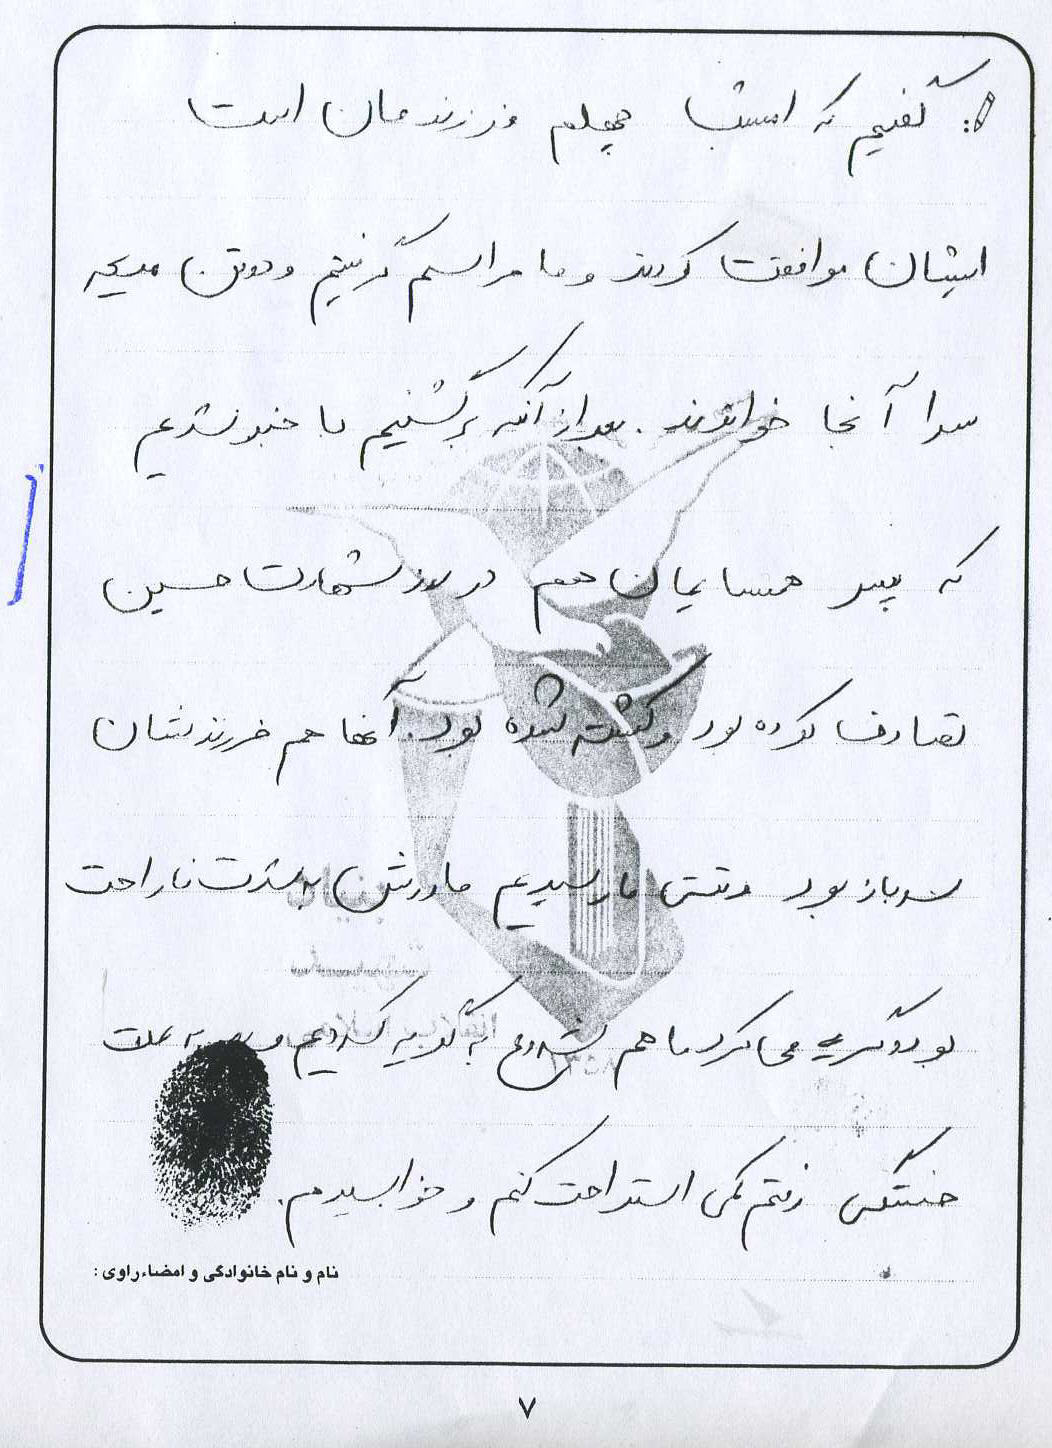 گفتیم که امشب چهلم فرزندمان است
ایشان موافقت کردند و ما مراسم گرفتیم و دو تن مدیحه
سرا آنجا خواندند. بعد از آنکه برگشتیم با خبر شدیم
که پسر همسایمان هم در روز شهادت حسین
تصادف کرده بود و کشته شده بود. آنها هم فرزندشان
سرباز بود وقتی ما رسیدیم مادرش به شدت ناراحت
بود و گریه می کرد ما هم شروع به گریه کردیم و به علت
خستگی رفتم کمی استراحت کنم و خوابیدم.
بنیاد
شهید
انقلاب اسلامی
۱۳۵۸
نام و نام خانوادگی و امضاء راوی :
۷